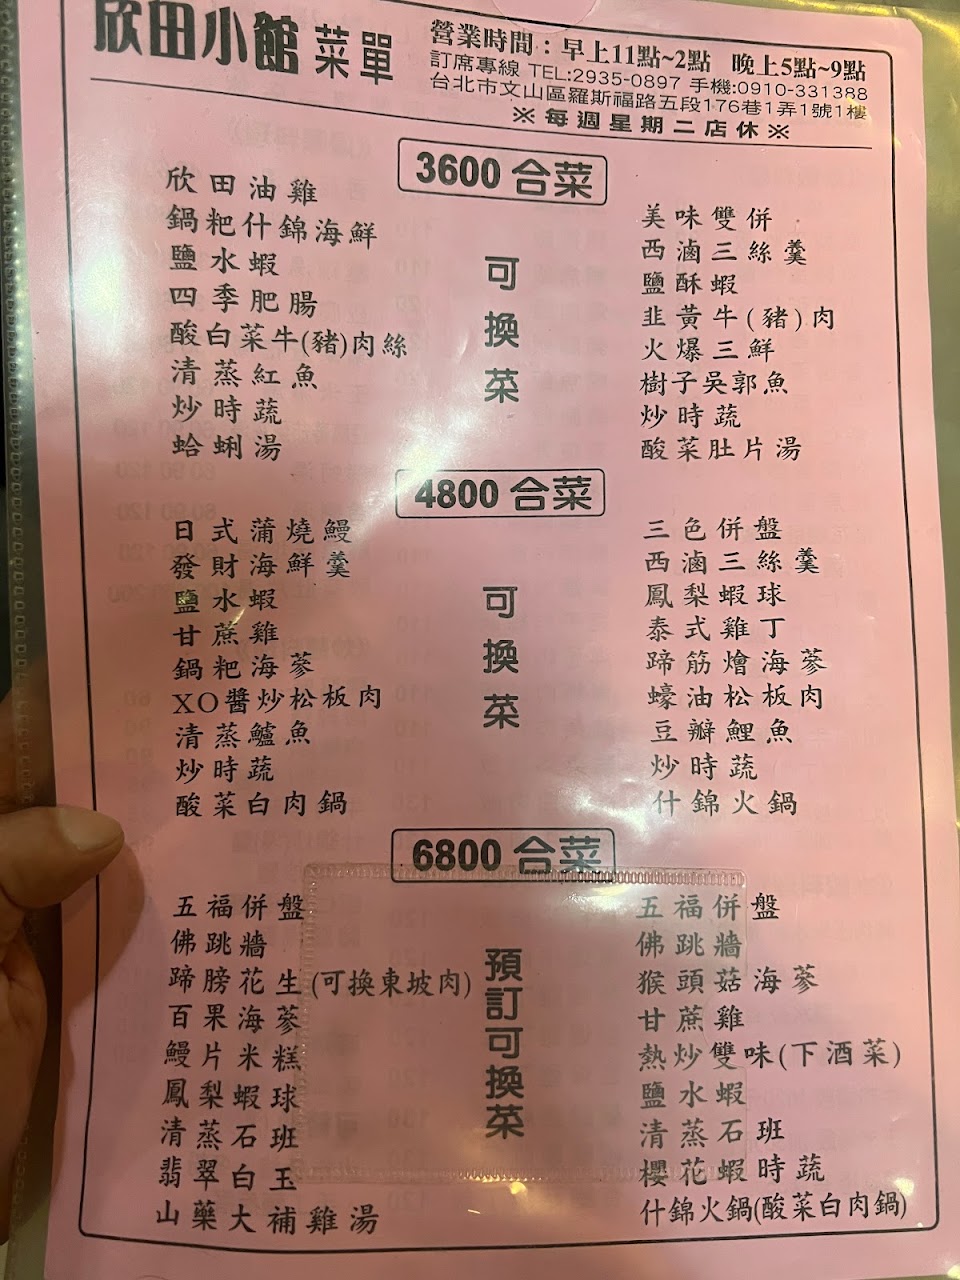 欣田小館 菜單
營業時間：早上11點~2點 晚上5點~9點
訂席專線 TEL:2935-0897 手機:0910-331388
台北市文山區羅斯福路五段176巷1弄1號1樓
※每週星期二店休※
3600 合菜
欣田油雞
鍋粑什錦海鮮
鹽水蝦
四季肥腸
酸白菜牛(豬)肉絲
清蒸紅魚
炒時蔬
蛤蜊湯
可換菜
美味雙併
西滷三絲羹
鹽酥蝦
韭黃牛(豬)肉
火爆三鮮
樹子吳郭魚
炒時蔬
酸菜肚片湯
4800 合菜
日式蒲燒鰻
發財海鮮羹
鹽水蝦
甘蔗雞
鍋粑海蔘
XO醬炒松板肉
清蒸鱸魚
炒時蔬
酸菜白肉鍋
可換菜
三色併盤
西滷三絲羹
鳳梨蝦球
泰式雞丁
蹄筋燴海蔘
蠔油松板肉
豆瓣鯉魚
炒時蔬
什錦火鍋
6800 合菜
五福併盤
佛跳牆
蹄膀花生(可換東坡肉)
百果海蔘
鰻片米糕
鳳梨蝦球
清蒸石班
翡翠白玉
山藥大補雞湯
預訂可換菜
五福併盤
佛跳牆
猴頭菇海蔘
甘蔗雞
熱炒雙味(下酒菜)
鹽水蝦
清蒸石班
櫻花蝦時蔬
什錦火鍋(酸菜白肉鍋)